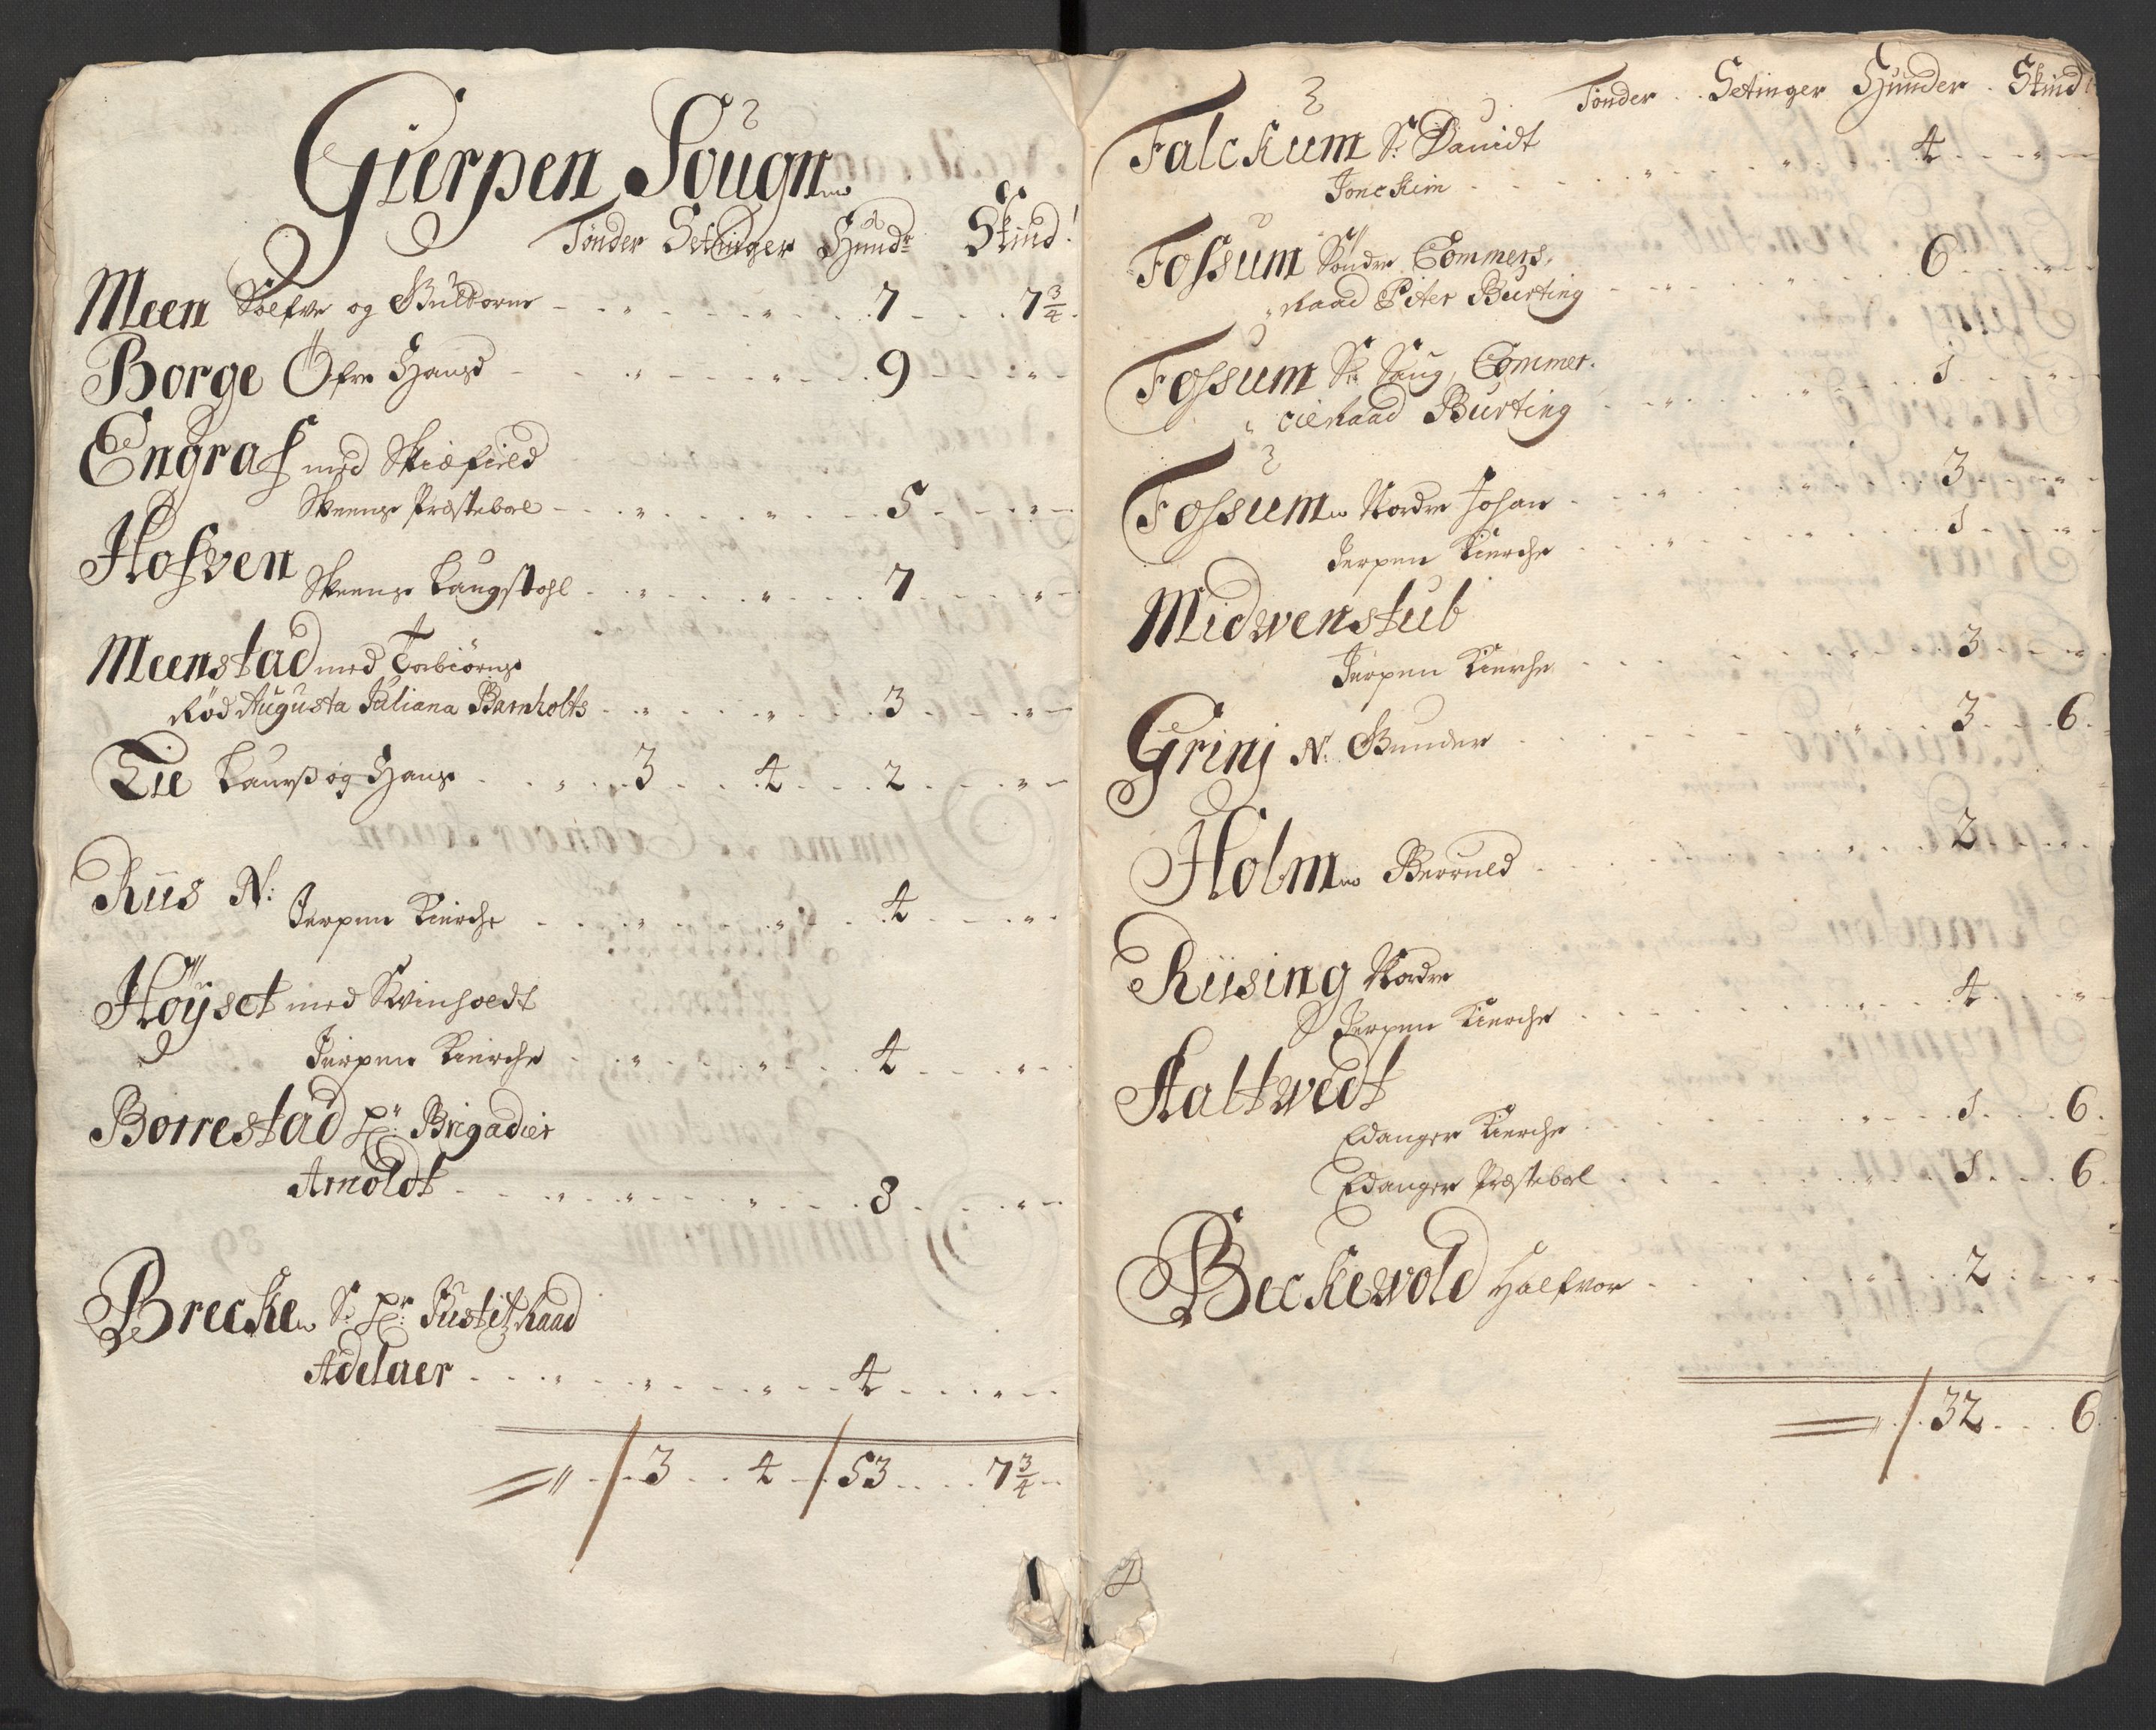 Gierpen Sougn
Tønder Setinger Hundr Skind
Meen Sølfve og Guldorm - " - " 7 - 7 3/4
Borge Øfre Hans - " - " 9 - "
Engraf med Skiefield
Skeens Præstebol - " - " 5 - "
Hofven
Skeens Laugstohl - " - " 7 - "
Meenstad med Torbiørns
Rød Augusta Juliana Barnholts - " - " 3 - "
Lie Laurs og Hans - " 3 4 2 - "
Riis N:
Jerpen Kierche - " - " 4 - "
Høyset med Kvinholdt
Jerpen Kierche - " - " 4 - "
Borrestad Hr: Brigadier
Arnoldt - " - " - " 8 - "
Brecke S: Hr: Justitz Raad
Adelaer - " - " - " 4 - "
3 4 53 7 3/4
Tønder Setinger Hunder Skind
Falckum S: Dauidt
Jonckim - " - " 4 - "
Fossum Søndre Commerz
Raad Piter Burting - " - " 6 - "
Fossum S: Saug, Commer-
cie Raad Burting - " - " 1 - "
Fossum Nordre Johan - " - " 3 - "
Jerpen Kierche - " - " 1 - "
Midwenstub
Jerpen Kierche - " - 3 - "
Grinj N: Gunder - " 3 6
Holm Berruld - " 2 - "
Riising Nordre
Jerpen Kierche - " 4 - "
Kaltwedt
Edanger Kierche - " 1 6
Edanger Præstebol - " 1 6
Beckewold Halfvor - " 2 - "
32 6